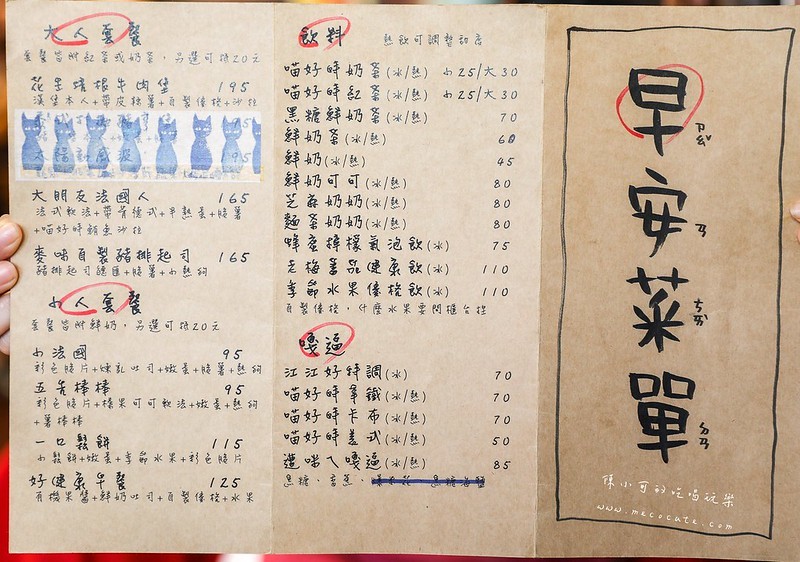 大人套餐
套餐皆附紅茶或奶茶，另選可抵20元
花生培根牛肉堡 195
漢堡本人+帶皮辣薯+自製優格+沙拉
195
大朋友法國人 165
法式軟法+帶骨德式+半熟蛋+脆薯
+喵好時鮪魚沙拉
麥咕自製豬排起司 165
豬排起司總匯+脆薯+小熱狗
小人套餐
套餐皆附鮮奶，另選可抵20元
小法國 95
彩色脆片+煉乳吐司+嫩蛋+脆薯+熱狗
五告棒棒 95
彩色脆片+榛果可可軟法+嫩蛋+熱狗
+薯棒棒
一口鬆餅 115
小鬆餅+嫩蛋+季節水果+彩色脆片
好健康早餐 125
有機果醬+鮮奶吐司+自製優格+水果
飲料 熱飲可調整甜度
喵好時奶茶(冰/熱) 小25/大30
喵好時紅茶(冰/熱) 小25/大30
黑糖鮮奶茶(冰/熱) 70
鮮奶茶(冰/熱) 60
鮮奶(冰/熱) 45
鮮奶可可(冰/熱) 80
芝麻奶奶(冰/熱) 80
麵茶奶奶(冰/熱) 80
蜂蜜檸檬氣泡飲(冰) 75
老梅蕃茄健康飲(冰) 110
季節水果優格飲(冰) 110
自製優格，什麼水果要問櫃台捏
嘎逼
江江好特調(冰) 70
喵好時拿鐵(冰/熱) 70
喵好時卡布(冰/熱) 70
喵好時美式(冰/熱) 50
遭咪ㄟ嘎逼(冰/熱) 85
黑糖、香蕉、
早安菜單
ㄗㄠˇ
ㄢ
ㄘㄞˋ
ㄉㄢ
陳小可的吃喝玩樂
www.mecocute.com